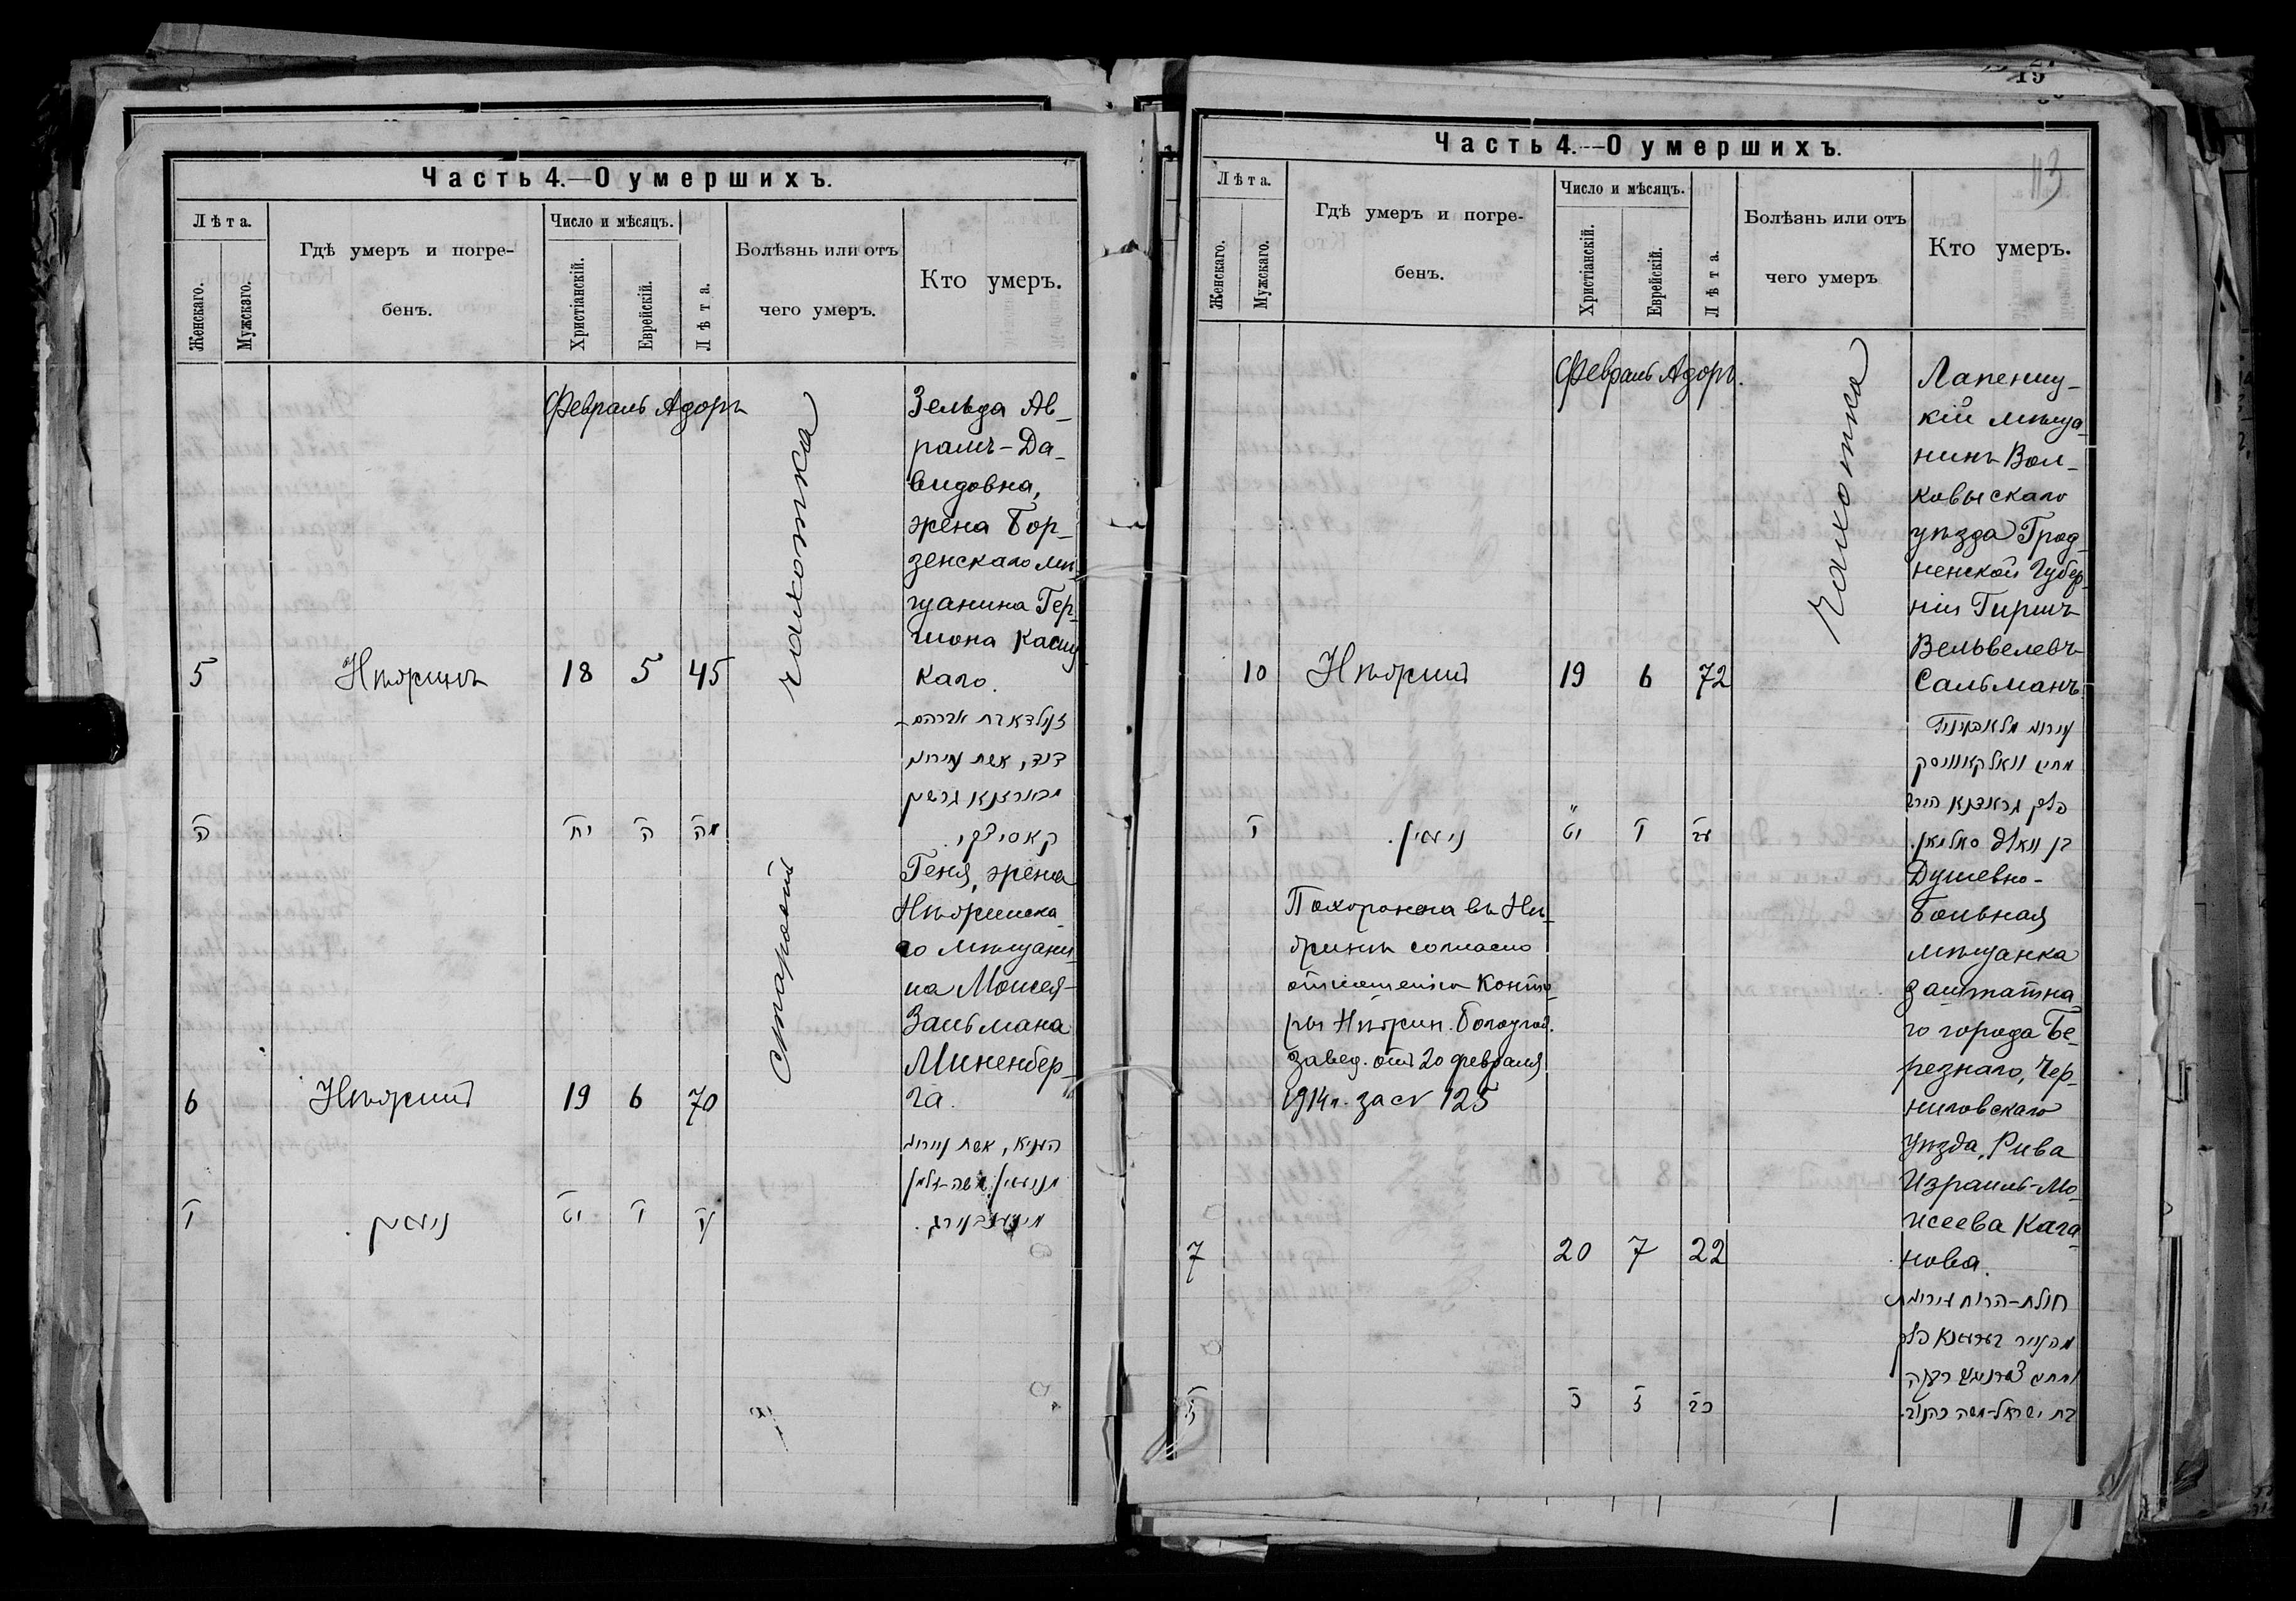 Часть 4.—О умершихъ.
Лѣта.
Женскаго.
Мужскаго.
Гдѣ умеръ и погре-
бенъ.
Число и мѣсяцъ.
Христіанскій.
Еврейскій.
Лѣта.
Болѣзнь или отъ
чего умеръ.
Кто умеръ.
Февраль Адоръ
5
Нѣжинъ
18 5 45
чахотка
Зельда Ав-
рамъ-Да-
видовна,
жена Бор-
зенскаго мѣ-
щанина Гер-
шона Касиц-
каго.
דוד, אשת
ה
יח ה מה
6
Нѣжинъ
19 6 70
старость
Геня, жена
Нѣжинска-
го мѣщани-
на Моисея-
Зальмана
Миненбер-
га.
ו
ניעזין.
יט ו ע
Часть 4.—О умершихъ.
113
Лѣта.
Женскаго.
Мужскаго.
Гдѣ умеръ и погре-
бенъ.
Число и мѣсяцъ.
Христіанскій.
Еврейскій.
Лѣта.
Болѣзнь или отъ
чего умеръ
Кто умеръ.
Февраль Адоръ.
10
Нѣжинъ
19 6 72
чахотка
Лапениц-
кій мѣща-
нинъ Вол-
ковыскаго
уѣзда Грод-
ненской Губер-
ніи Гиршъ
Вельвелевъ
Сальманъ
י
ניעזין.
יט ו עב
7
Похоронена въ Нѣ-
жинѣ согласно
отношенія Конто-
ры Нѣжин. Богоугод.
завед. отъ 20 февраля
1914 г. за № 125
20 7 22
Душевно-
больная
мѣщанка
заштатна-
го города Бе-
резнаго, Чер-
ниговскаго
Уѣзда, Рива
Израиль-Мо-
исеева Кага-
нова.
ז
כ ז כב
בת ישראל-משה